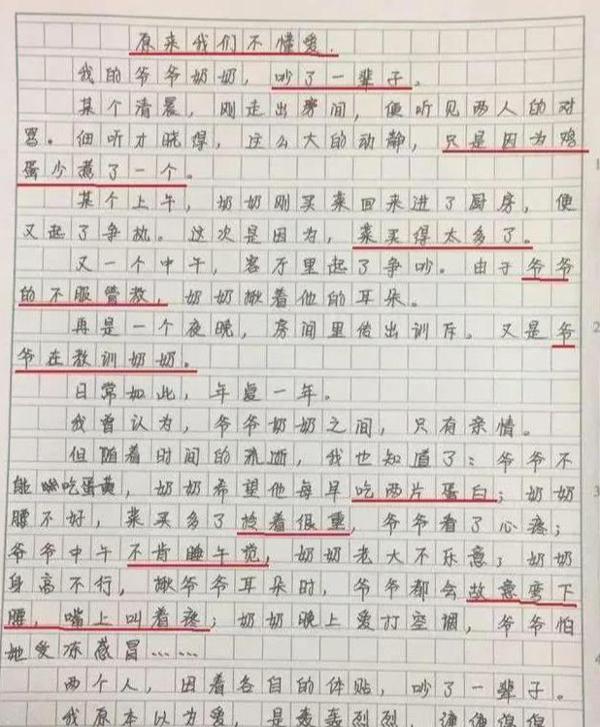 原来我们不懂爱.
我的爷爷奶奶，吵了一辈子。
某个清晨，刚走出房间，便听见两人的对
骂。细听才晓得，这么大的动静，只是因为鸡
蛋少煮了一个。
某个上午，奶奶刚买菜回来进了厨房，便
又起了争执。这次是因为，菜买得太多了。
又一个中午，客厅里起了争吵。由于爷爷
的不服管教，奶奶揪着他的耳朵。
再是一个夜晚，房间里传出训斥。又是爷
爷在教训奶奶。
日常如此，年复一年。
我曾认为，爷爷奶奶之间，只有亲情。
但随着时间的流逝，我也知道了：爷爷不
能吃蛋黄，奶奶希望他每早吃两片蛋白；奶奶
腰不好，菜买多了拎着很重，爷爷看了心疼；
爷爷中午不肯睡午觉，奶奶老大不乐意；奶奶
身高不行，揪爷爷耳朵时，爷爷都会故意弯下
腰，嘴上叫着疼；奶奶晚上爱打空调，爷爷怕
她受冻感冒……
两个人，因着各自的体贴，吵了一辈子。
我原本以为爱，是轰轰烈烈，
1
2
3
4